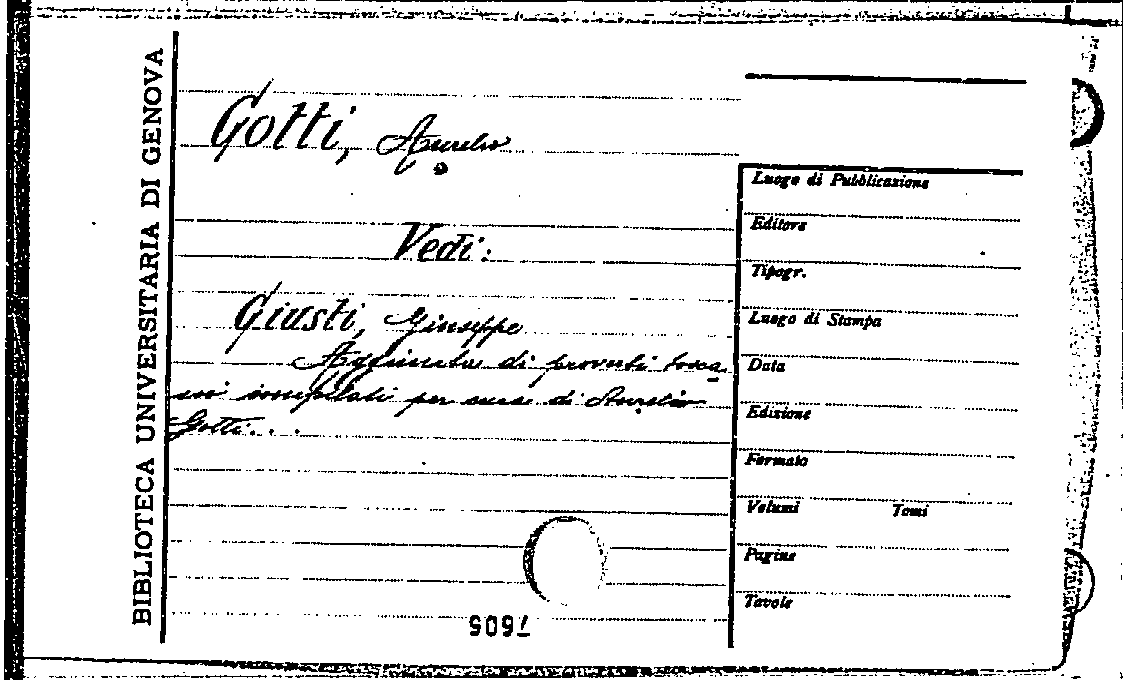 BIBLIOTECA UNIVERSITARIA DI GENOVA
Gotti, Aurelio
Vedi:
Giusti, Giuseppe
Aggiunta di proverbi tosca
ni compilati per cura di Aurelio
Gotti...
7605
Luogo di Pubblicazione
Editore
Tipogr.
Luogo di Stampa
Data
Edizione
Formato
Volumi Tomi
Pagine
Tavole